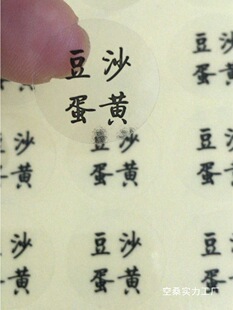 豆沙
蛋黄
豆沙
豆沙
蛋黄
豆沙
蛋黄
豆沙
蛋黄
豆沙
蛋黄
豆沙
蛋黄
豆沙
蛋黄
空桑实力工厂